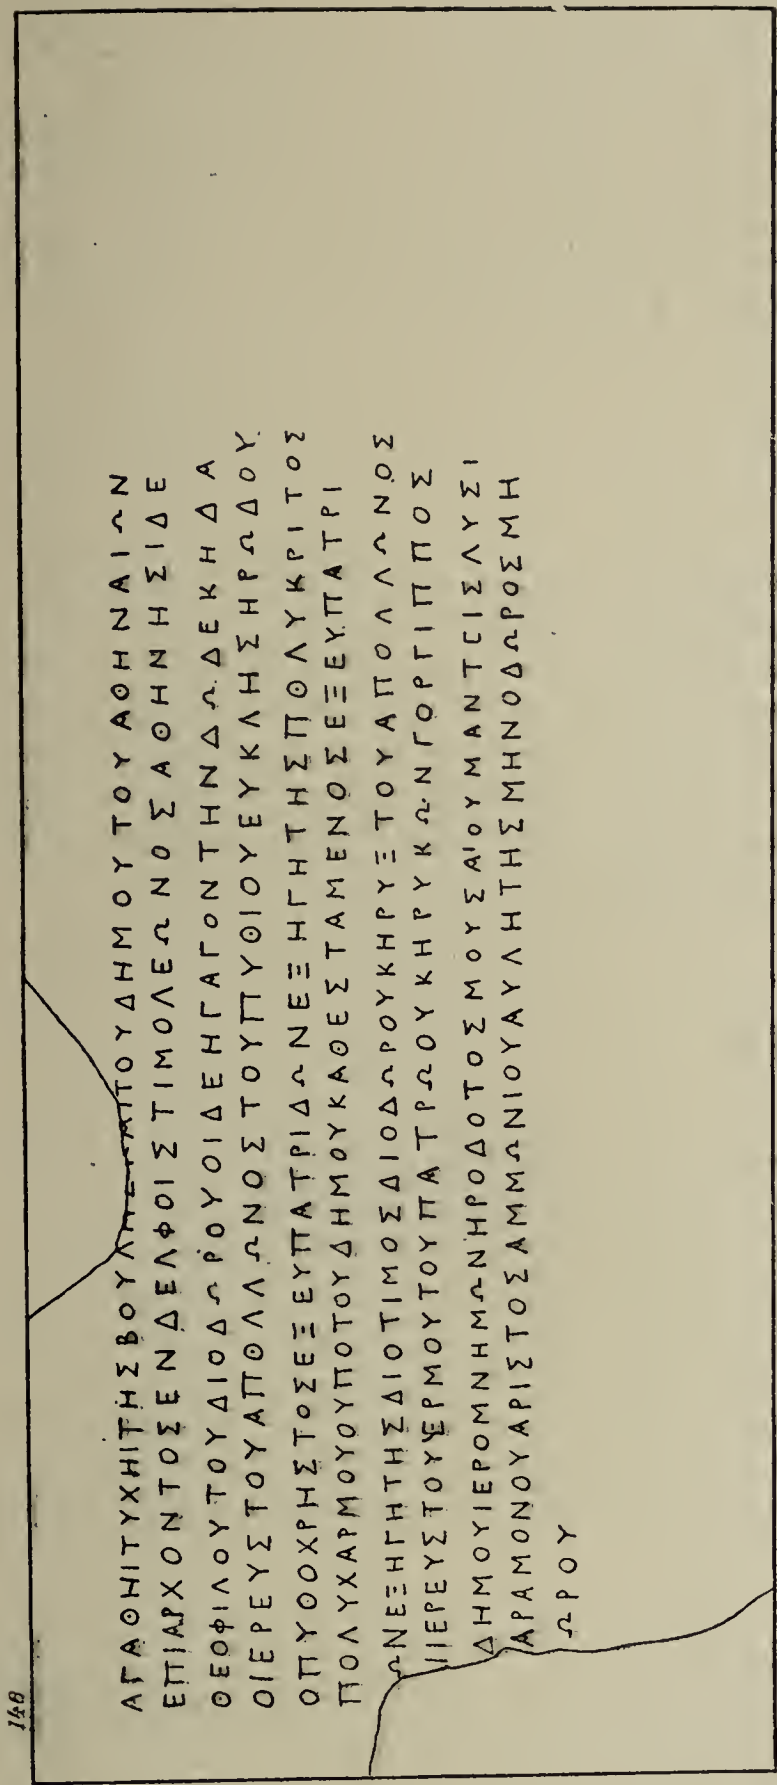 148
ΑΓΑΘΗΙΤΥΧΗΙΤΗΣΒΟΥΛΗΣΚΑΙΤΟΥΔΗΜΟΥΤΟΥΑΘΗΝΑΙΩΝ
ΕΠΙΑΡΧΟΝΤΟΣΕΝΔΕΛΦΟΙΣΤΙΜΟΛΕΩΝΟΣΑΘΗΝΗΣΙΔΕ
ΘΕΟΦΙΛΟΥΤΟΥΔΙΟΔΩΡΟΥΟΙΔΕΗΓΑΓΟΝΤΗΝΔΩΔΕΚΗΔΑ
ΟΙΕΡΕΥΣΤΟΥΑΠΟΛΛΩΝΟΣΤΟΥΠΥΘΙΟΥΕΥΚΛΗΣΗΡΩΔΟΥ
ΟΠΥΘΟΧΡΗΣΤΟΣΕΞΕΥΠΑΤΡΙΔΩΝΕΞΗΓΗΤΗΣΠΟΛΥΚΡΙΤΟΣ
ΠΟΛΥΧΑΡΜΟΥΟΥΠΟΤΟΥΔΗΜΟΥΚΑΘΕΣΤΑΜΕΝΟΣΕΞΕΥΠΑΤΡΙ
ΩΝΕΞΗΓΗΤΗΣΔΙΟΤΙΜΟΣΔΙΟΔΩΡΟΥΚΗΡΥΞΤΟΥΑΠΟΛΛΩΝΟΣ
ΙΕΡΕΥΣΤΟΥΕΡΜΟΥΤΟΥΠΑΤΡΩΟΥΚΗΡΥΚΩΝΓΟΡΓΙΠΠΟΣ
ΔΗΜΟΥΙΕΡΟΜΝΗΜΩΝΗΡΟΔΟΤΟΣΜΟΥΣΑΙΟΥΜΑΝΤΕΙΣΛΥΣΙ
ΑΡΑΜΟΝΟΥΑΡΙΣΤΟΣΑΜΜΩΝΙΟΥΑΥΛΗΤΗΣΜΗΝΟΔΩΡΟΣΜΗ
ΩΡΟΥ